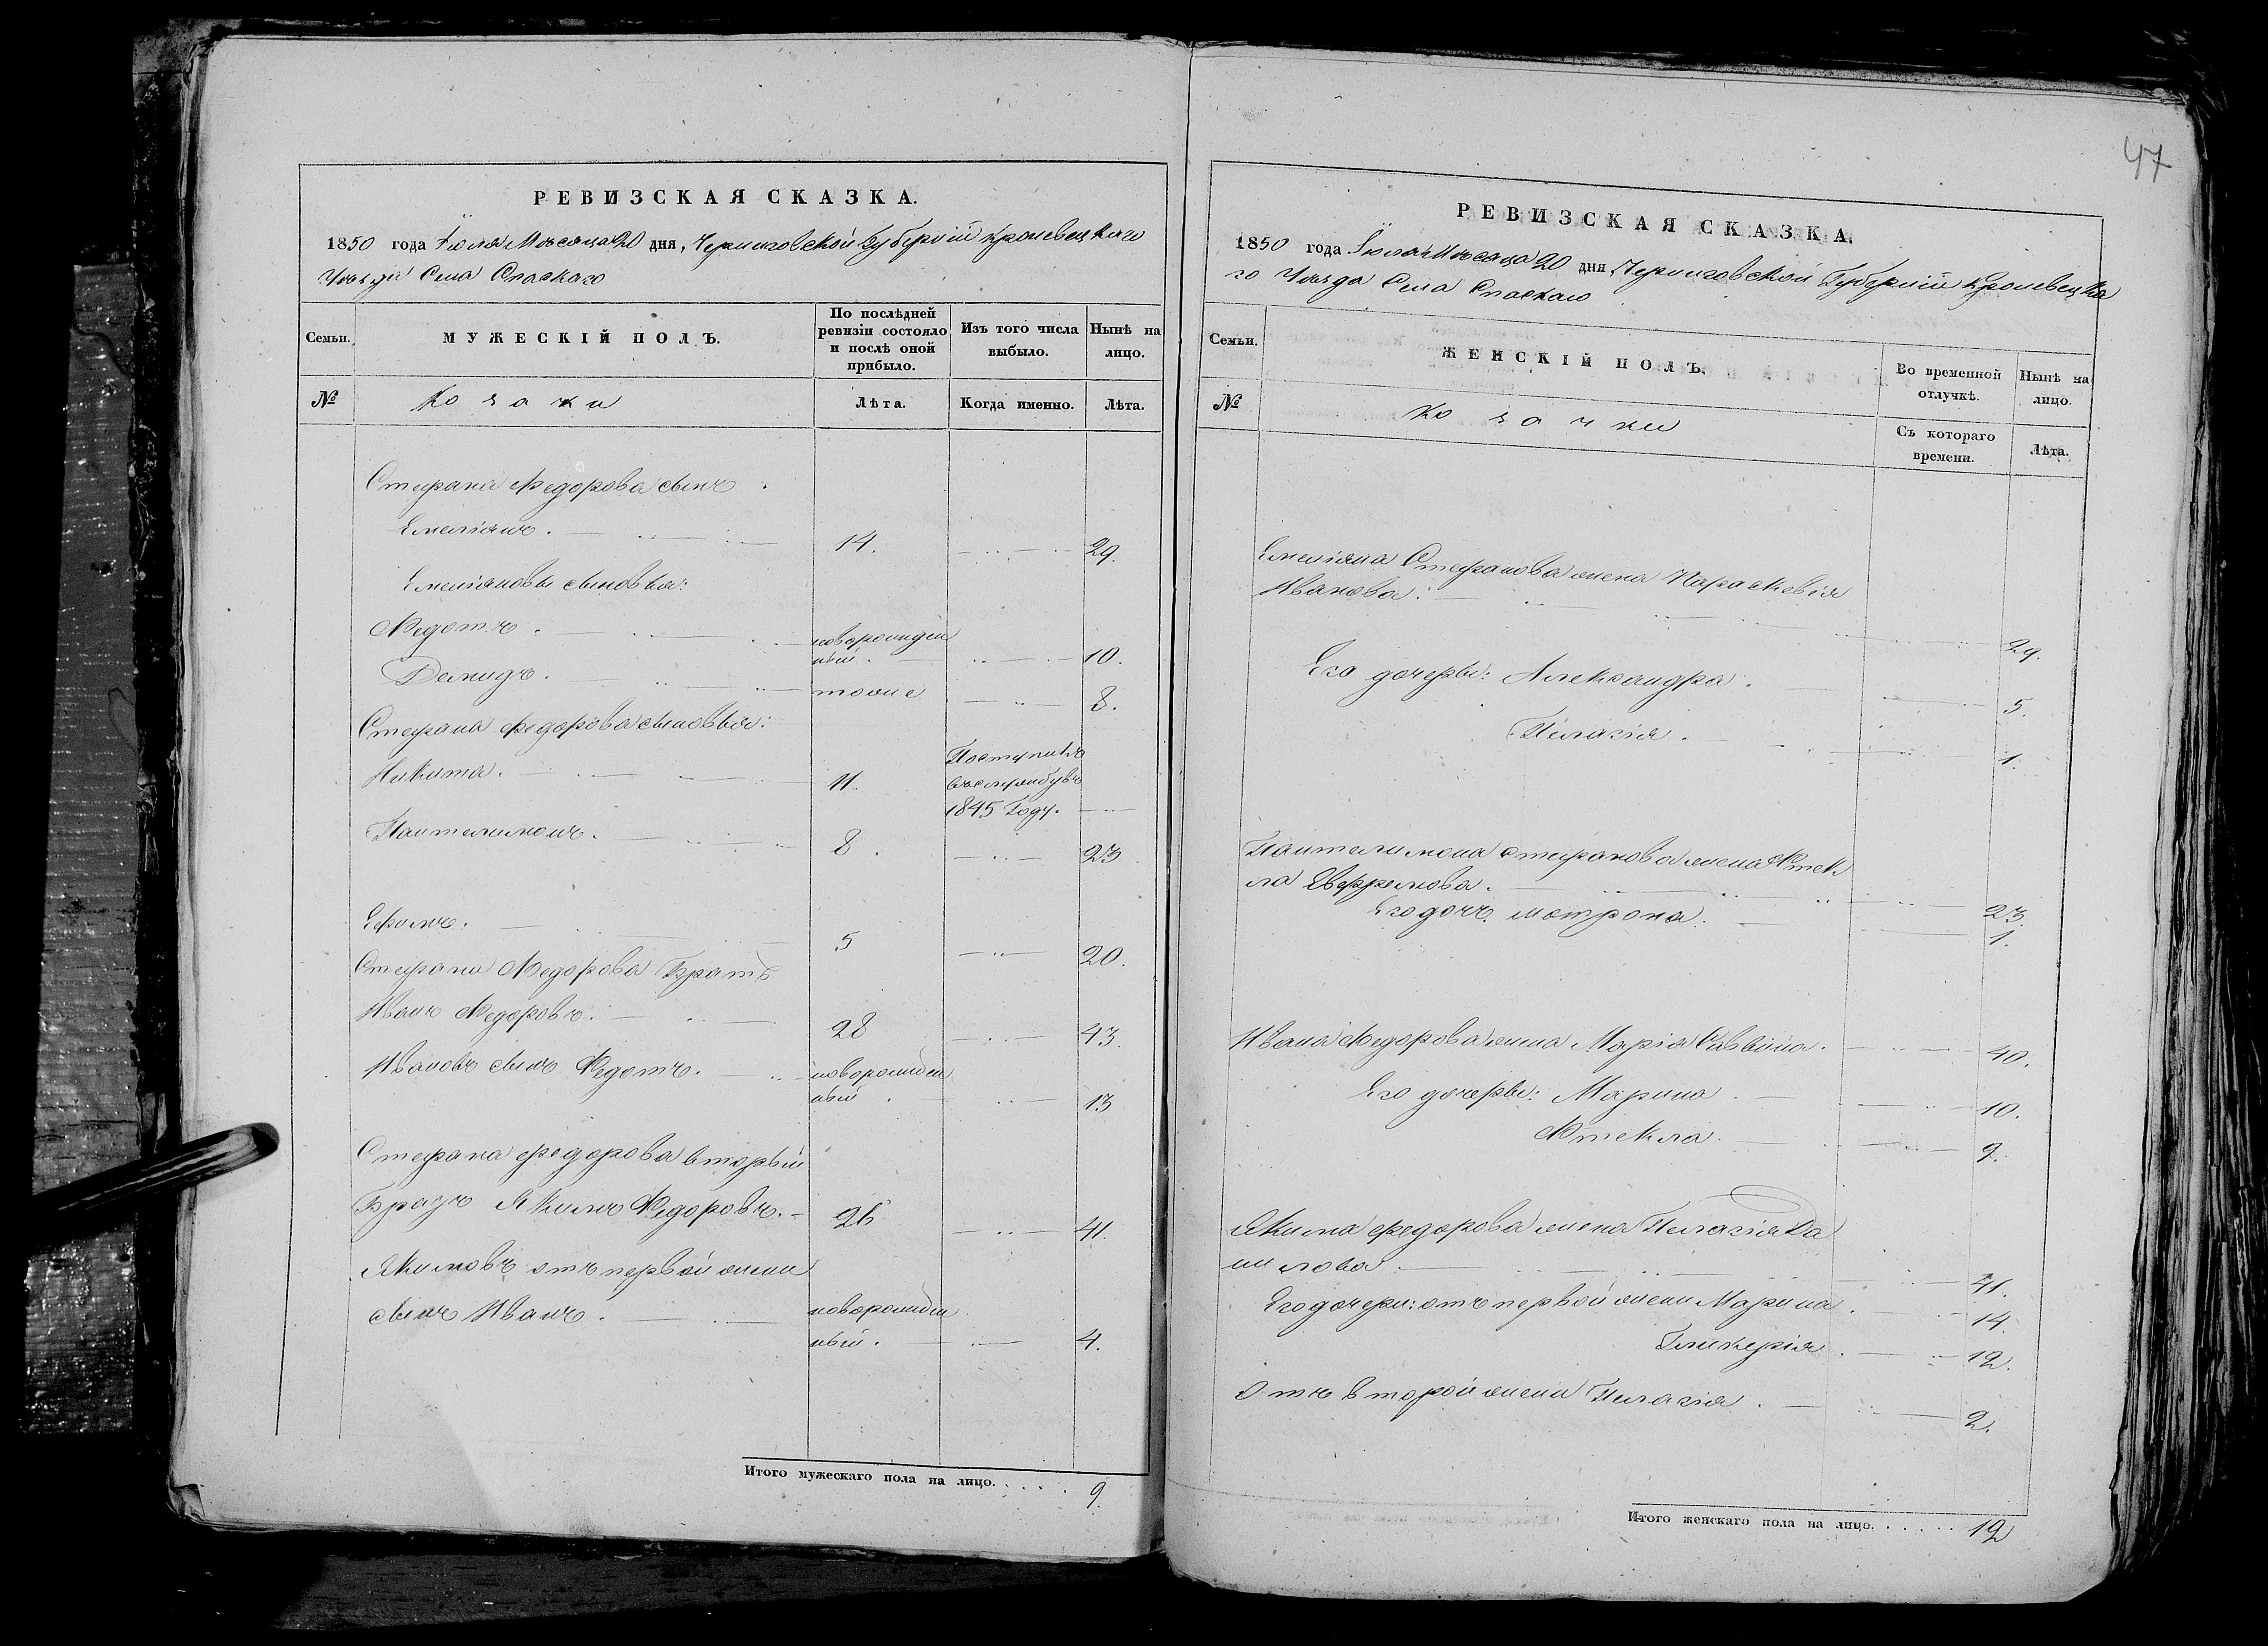 РЕВИЗСКАЯ СКАЗКА.
1850 года Іюля Мѣсяца 20 дня, Черниговской Губерніи Кролевецкаго
Уѣзда Села Спаскаго
Семьи.
МУЖЕСКІЙ ПОЛЪ.
По послѣдней ревизіи состояло и послѣ оной прибыло.
Изъ того числа выбыло.
Нынѣ на лицо.
№
Козаки
Лѣта.
Когда именно.
Лѣта.
Стефана Федорова сынъ
Емеліянъ. 14. 29.
Емеліяновы сыновья:
Федотъ. новорожден
ный. 10.
Демидъ. тоже 8.
Стефана Федорова сыновья:
Никита. 11. Поступилъ
1845 Году.
Пантелимонъ. 8. 23
Ефимъ. 5 20.
Стефана Федорова Братъ
Иванъ Федоровъ. 28 43.
Ивановъ сынъ Федотъ. новорожден
ный 13
Стефана федорова вторый
Братъ Якимъ Федоровъ. 26 41.
Якимовъ отъ первой жены
сынъ Иванъ. новорожден
ный. 4.
Итого мужескаго пола на лицо. 9.
47
РЕВИЗСКАЯ СКАЗКА.
1850 года Іюля Мѣсяца 20 дня, Черниговской Губерніи Кролевецка
го Уѣзда Села Спаскаго
Семьи.
ЖЕНСКІЙ ПОЛЪ.
Во временной отлучкѣ.
Нынѣ на лицо.
№
Козачки
Съ котораго времени.
Лѣта.
Емеліяна Стефанова жена Параскевія
Иванова: 29.
Его дочеры: Александра. 5.
Пелагія. 1.
Пантелимона стефанова жена Фтек
ла Евфремова. 23.
Его дочь мотрона. 1.
Ивана Федорова жена Марія Саввина. 40.
Его дочеры: Марина 10.
Фтекла. 9.
Якима федорова жена Пелагія Да
нилова 41.
Его дочери: отъ первой жены Марина. 14.
Гликерія. 12.
Отъ второй жены Пелагія. 2.
Итого женскаго пола на лицо. 12